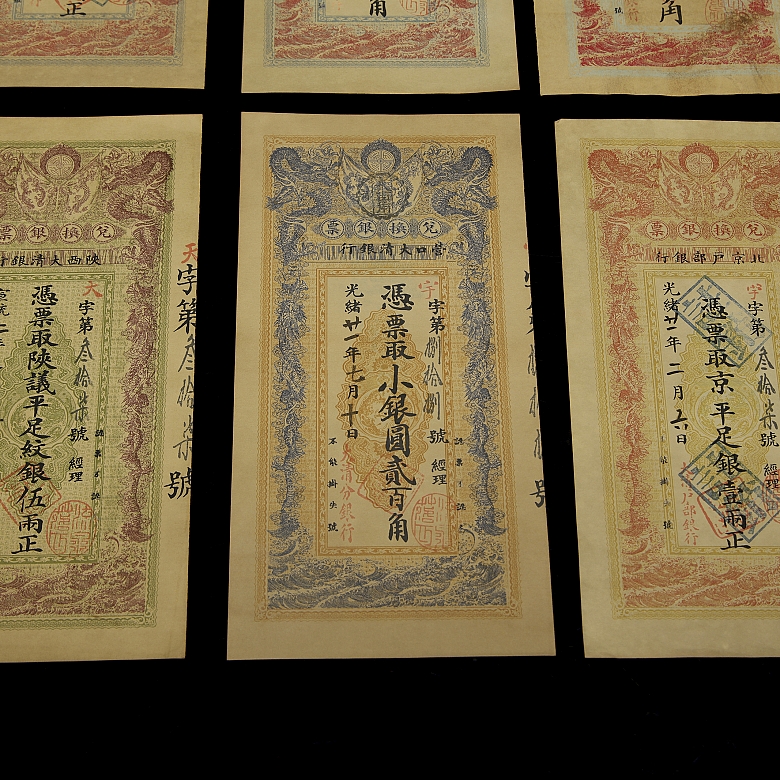 正
角
角
兌換銀票
陝西大清銀行
天
字第叁拾柒號
經理
憑票取陝議平足紋銀伍兩正
天
字第叁拾柒號
兌換銀票
營口大清銀行
宇
字第捌拾捌號
經理
憑票取小銀圓貳百角
光緒廿一年七月十日
認票不認人
不能掛失號
大清分銀行
兌換銀票
北京戶部銀行
字第叁拾柒號
經理
憑票取京平足銀壹兩正
光緒廿一年二月六日
不能掛失號
戶部銀行